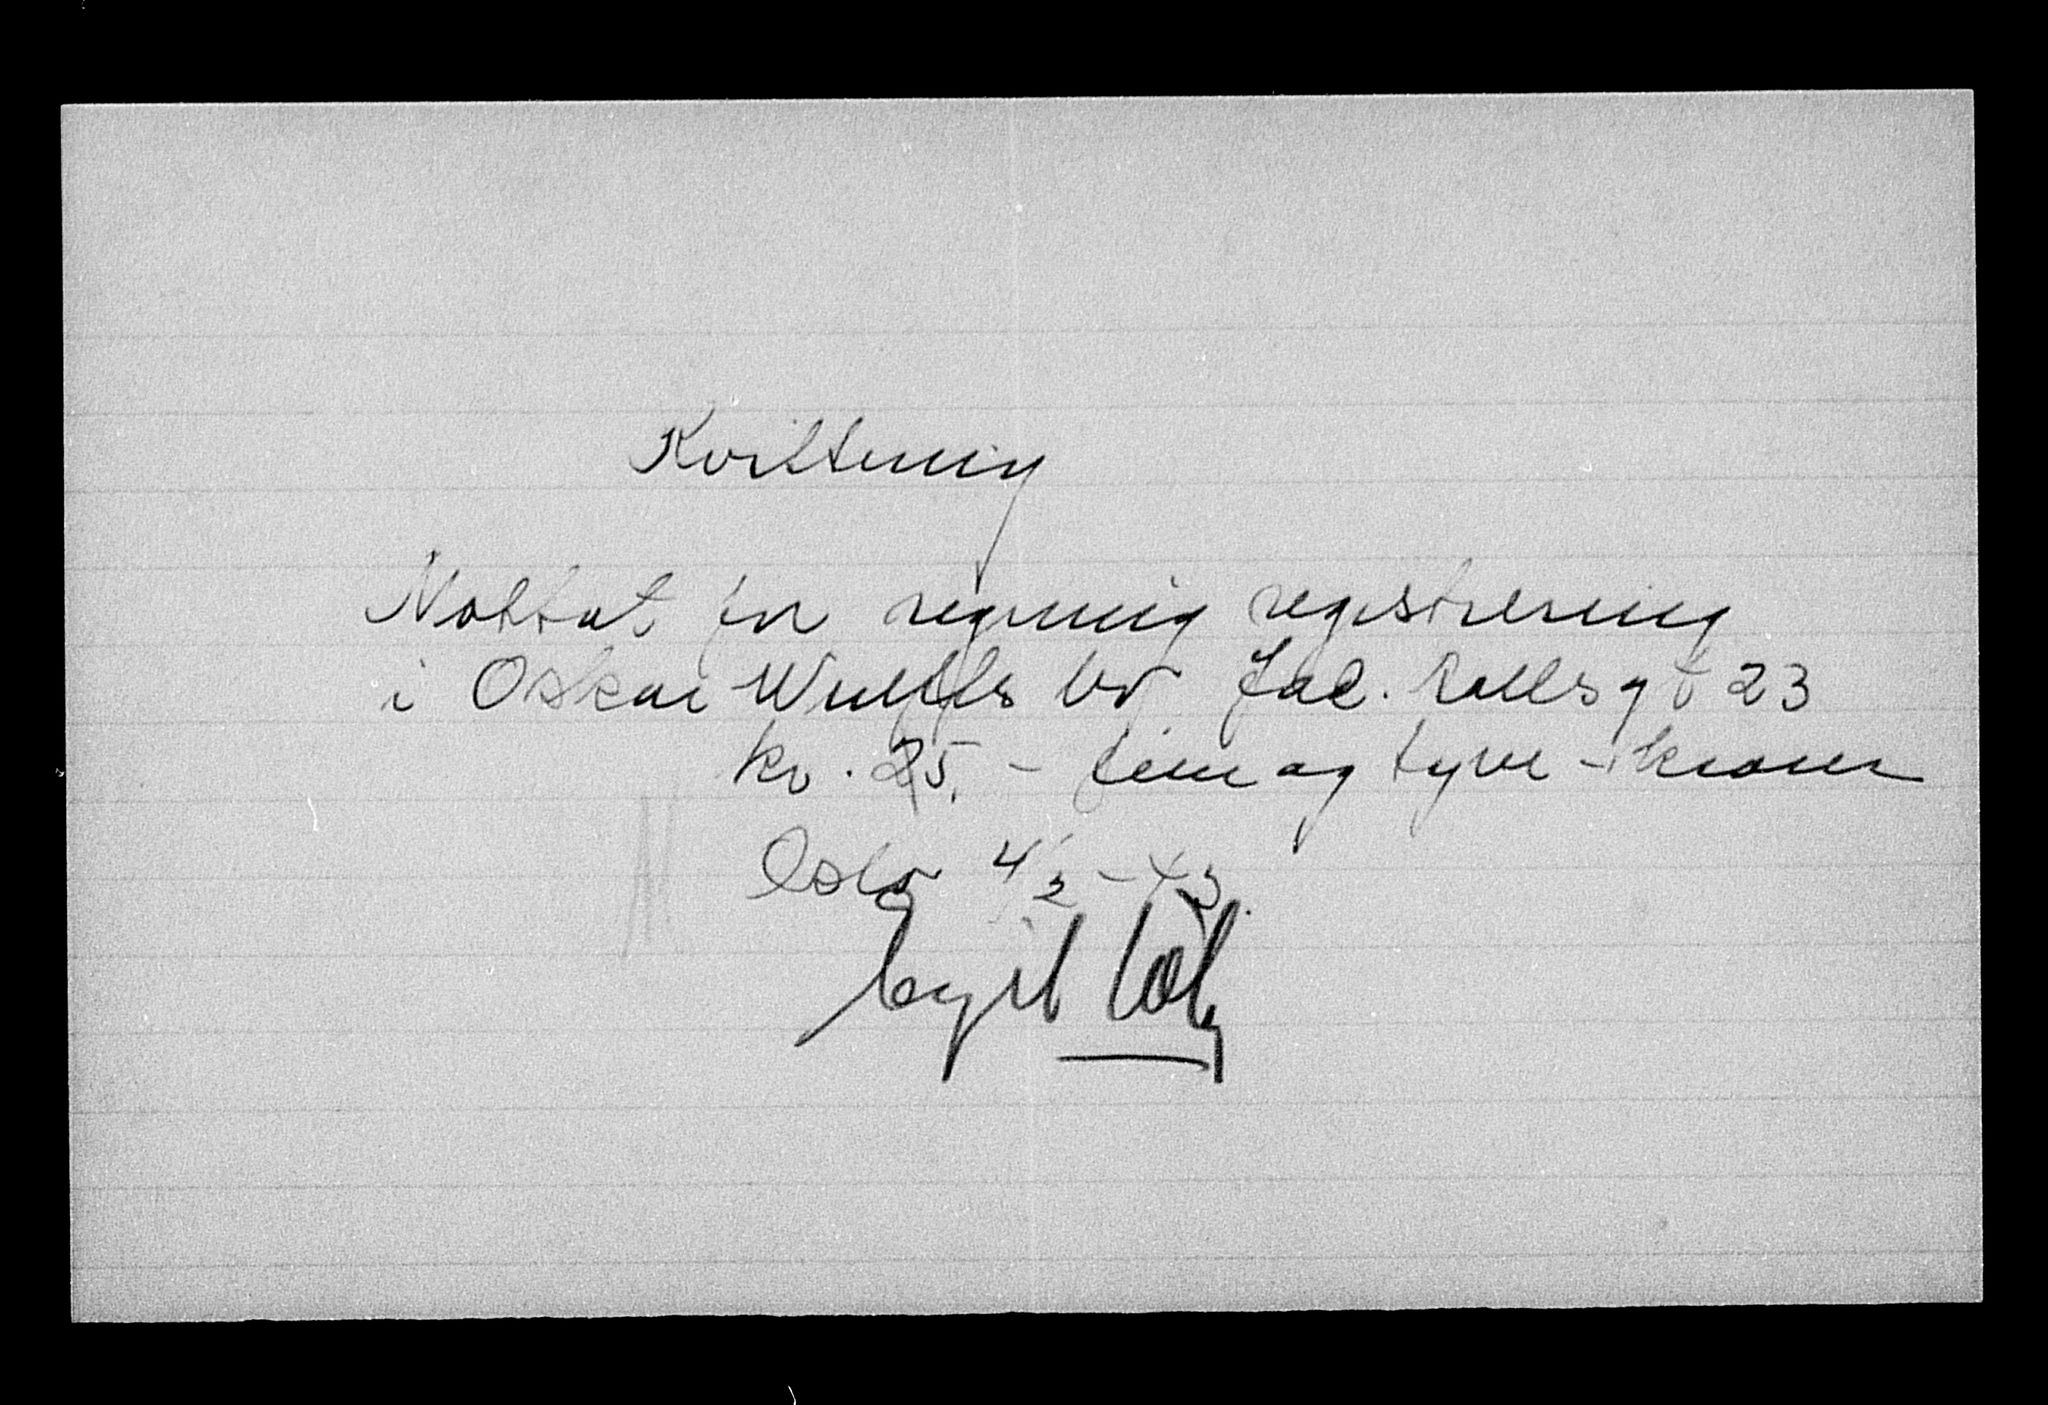 Kvittering
Mottat for regning registrering
i Oskar Wulffs bo Jac. Aallsgt 23
kr. 25, - fem og tyve - kroner
Oslo 4/2 - 43.
Egil